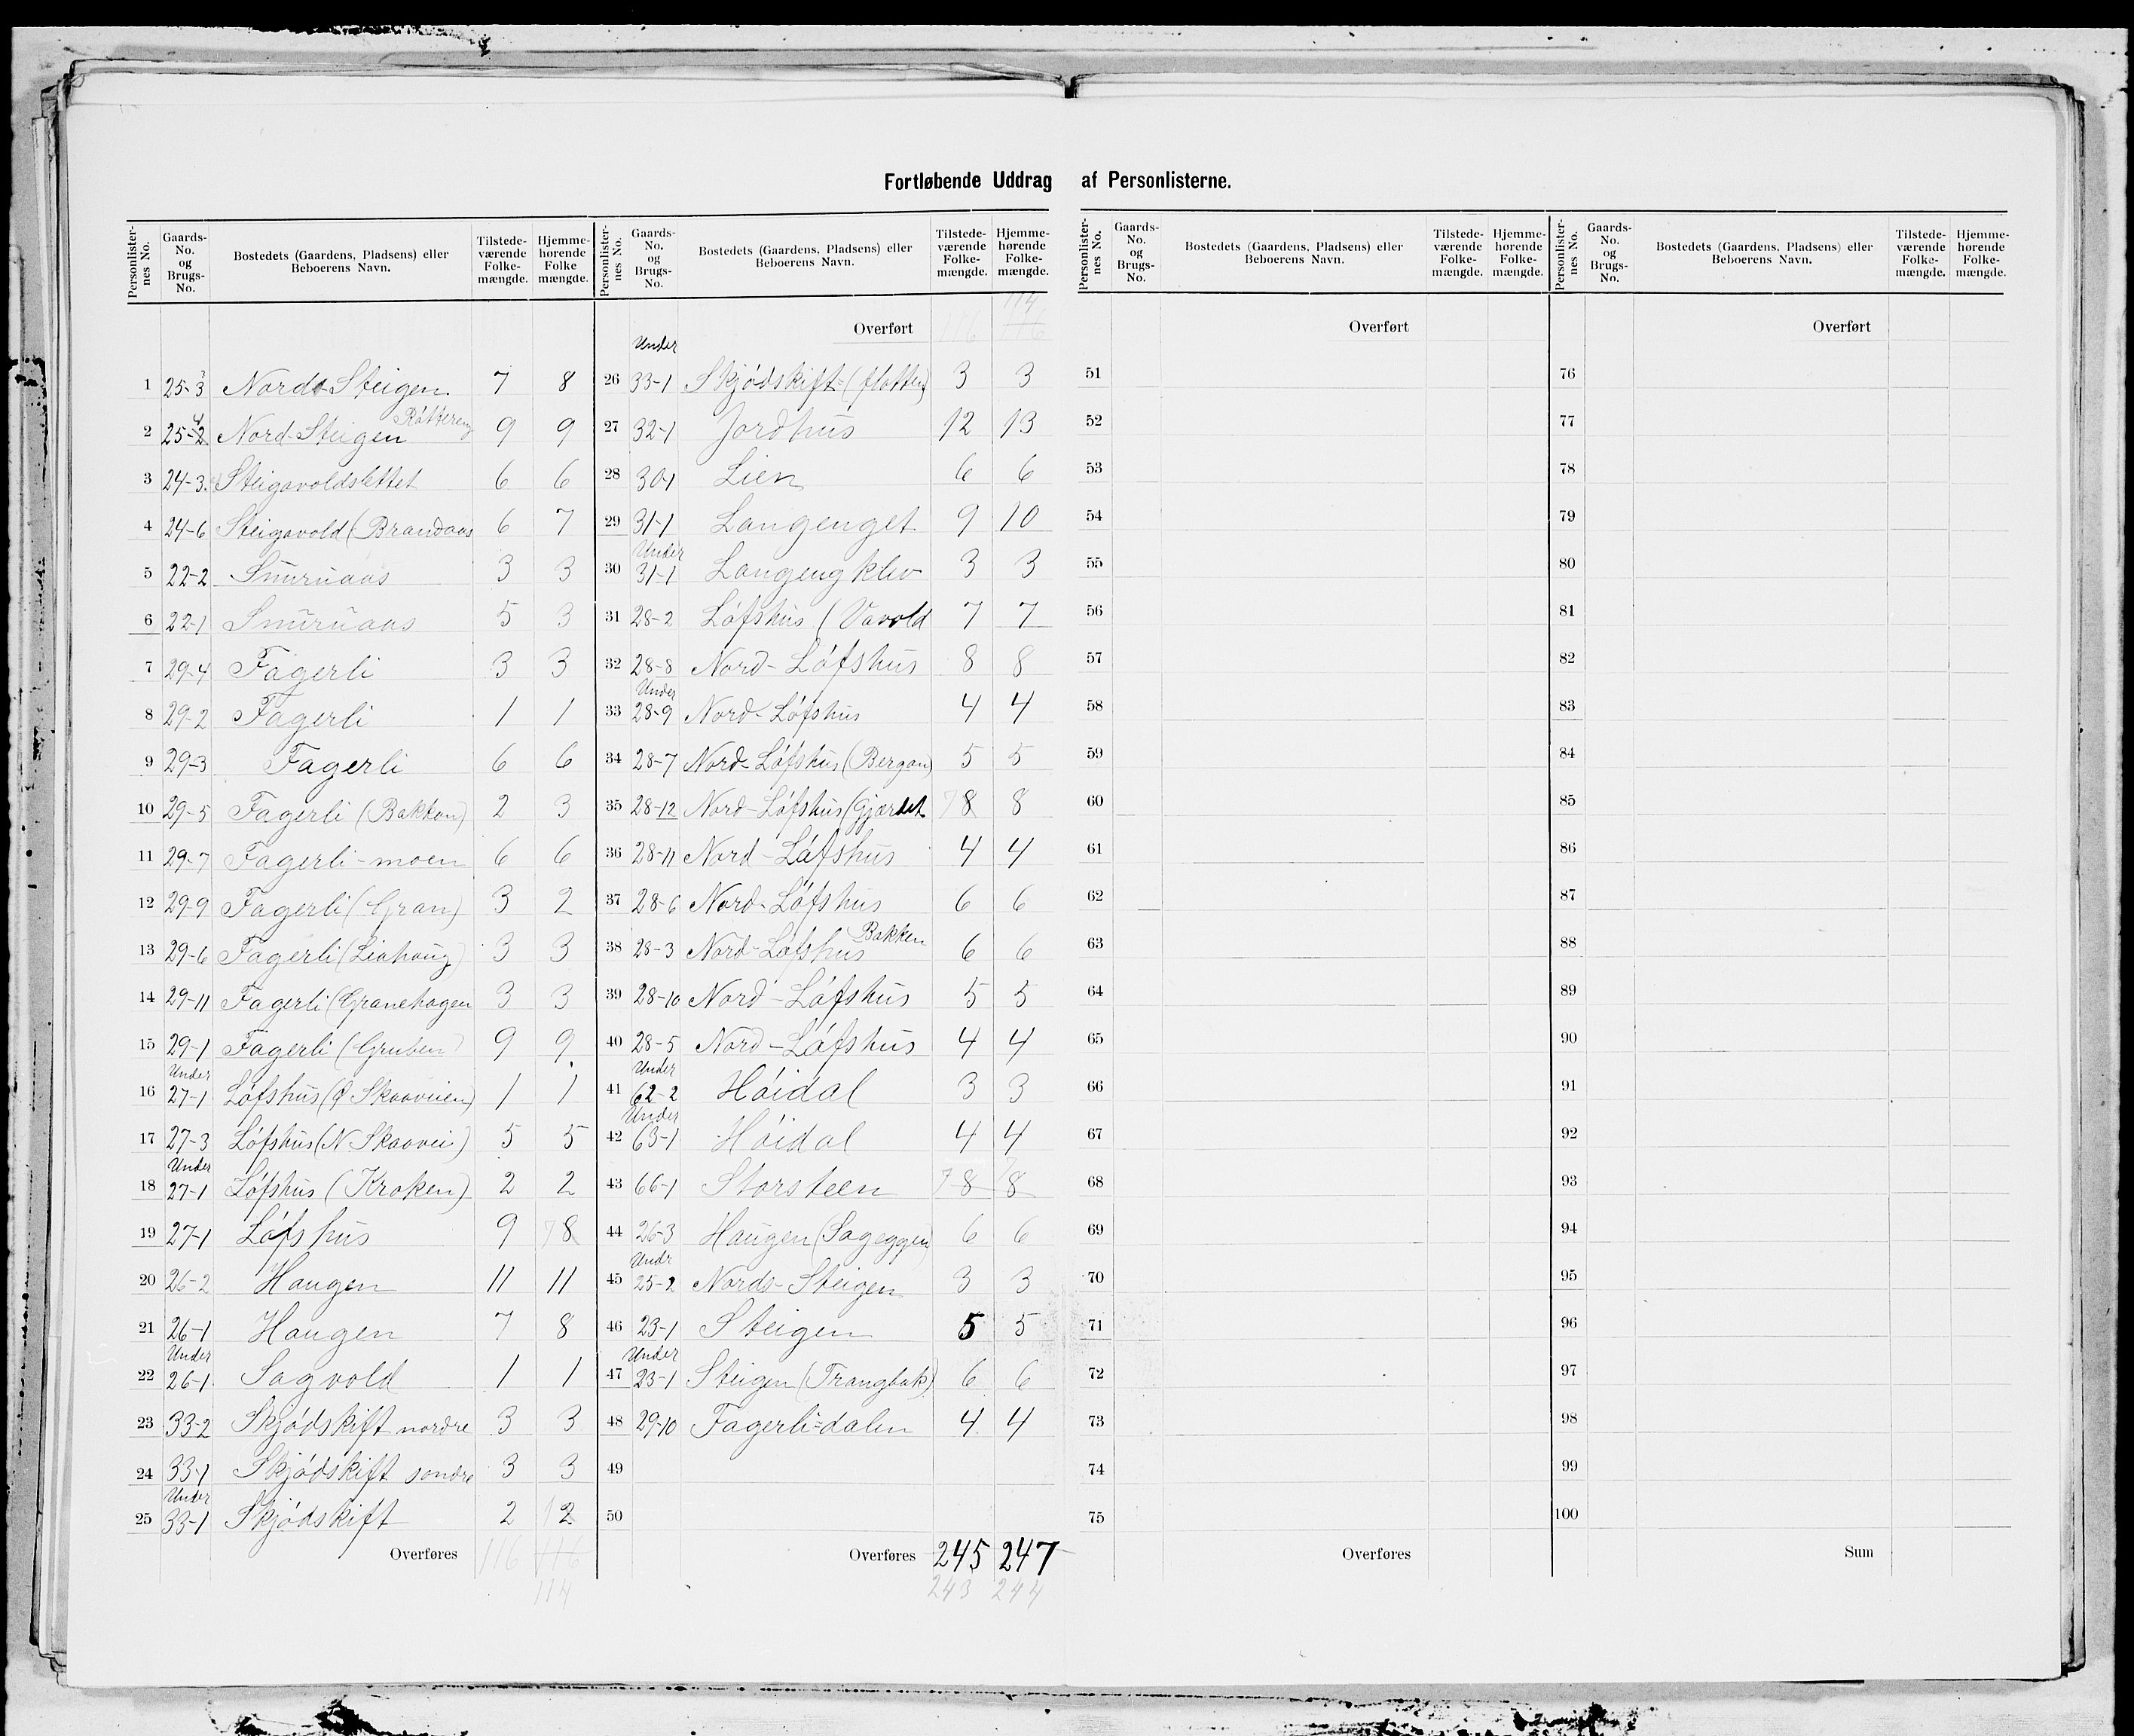 Fortløbende Uddrag af Personlisterne.
Personlister-nes No. | Gaards-No. og Brugs-No. | Bostedets (Gaardens, Pladsens) eller Beboerens Navn. | Tilstede-værende Folke-mængde. | Hjemme-hørende Folke mængde.
1 25-3 Nords-Steigen 7 8
2 25-4 Nord-Steigen Råttereng 9 9
3 24-3 Steigavoldslettet 6 6
4 24-6 Steigavold (Brandaas 6 7
5 22-2 Smuruaas 3 3
6 22-1 Smuruaas 5 3
7 29-4 Fagerli 3 3
8 29-2 Fagerli 1 1
9 29-3 Fagerli 6 6
10 29-5 Fagerli (Bakken) 2 3
11 29-7 Fagerli-moen 6 6
12 29-9 Fagerli (Gran) 3 2
13 29-6 Fagerli (Liahaug) 3 3
14 29-11 Fagerli (Granehagen 3 3
15 29-1 Fagerli (Gruben) 9 9
16 Under 27-1 Løfshus (Ø Skaaveien) 1 1
17 27-3 Løfshus (N Skaavei) 5 5
18 Under 27-1 Løfshus (Kroken) 2 2
19 27-1 Løfshus 9 7 8
20 26-2 Haugen 11 11
21 26-1 Haugen 7 8
22 Under 26-1 Sagvold 1 1
23 33-2 Skjødskift nordre 3 3
24 33-1 Skjødskift søndre 3 3
25 Under 33-1 Skjødskift 2 1 2
Overføres 116 116
114
Personlister-nes No. | Gaards-No. og Brugs-No. | Bostedets (Gaardens, Pladsens) eller Beboerens Navn. | Tilstede-værende Folke-mængde. | Hjemme-hørende Folke-mængde.
114
Overført 116 116
26 Under 33-1 Skjødskift (flatten) 3 3
27 32-1 Jordhus 12 13
28 30-1 Lien 6 6
29 31-1 Langenget 9 10
30 Under 31-1 Langengklev 3 3
31 28-2 Løfshus (Vavold 7 7
32 28-8 Nord-Løfshus 8 8
33 Under 28-9 Nord-Løfshus 4 4
34 28-7 Nord-Løfshus (Bergan) 5 5
35 28-12 Nord-Løfshus (Gjærdet 7 8 8
36 28-11 Nord-Løfshus 4 4
37 28-6 Nord-Løfshus 6 6
38 28-3 Nord-Løfshus Bakken 6 6
39 28-10 Nord-Løfshus 5 5
40 28-5 Nord-Løfshus 4 4
41 Under 62-2 Høidal 3 3
42 Under 63-1 Høidal 4 4
43 66-1 Storsteen 7 8 7 8
44 26-3 Haugen (Sageggen) 6 6
45 Undr 25-2 Nords-Steigen 3 3
46 23-1 Steigen 5 5
47 Under 23-1 Steigen (Trangbak) 6 6
48 29-10 Fagerli-dalen 4 4
49
50
Overføres 245 247
243 244
Personlister-nes No. | Gaards-No. og Brugs-No. | Bostedets (Gaardens, Pladsens) eller Beboerens Navn. | Tilstede-værende Folke-mængde. | Hjemme-hørende Folke-mængde.
Overført
51
52
53
54
55
56
57
58
59
60
61
62
63
64
65
66
67
68
69
70
71
72
73
74
75
Overføres
Personlister-nes No. | Gaards-No. og Brugs-No. | Bostedets (Gaardens, Pladsens) eller Beboerens Navn. | Tilstede-værende Folke-mængde. | Hjemme-hørende Folke-mængde.
Overført
76
77
78
79
80
81
82
83
84
85
86
87
88
89
90
91
92
93
94
95
96
97
98
99
100
Sum